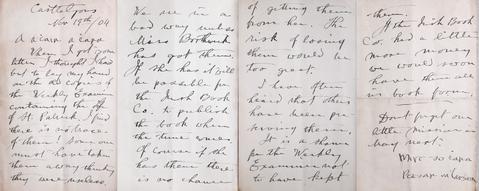 Castlelyons
Nov 19th '04
A cara a cara
When I got your
letter I thought I had
but to lay my hand
on the old copies of
the Weekly Examiner
containing the Off
of St Patrick. I find
there is no trace
of them! Someone
must have taken
them away thinking
they were useless.
We are in a
bad way unless
Miss Borthwick
has got them.
If she has it will
be possible for
the Irish Book
Co. to publish
the book when
the time comes.
Of course if she
has them there
is no chance
of getting them
from her. The
risk of losing
them would be
too great.
I have often
heard that others
have been pre-
serving them.
It is a shame
for the Weekly
Examiner not
to have kept
them.
If the Irish Book
Co. had a little
more money
we would soon
have them all
in book form.
Don't forget our
little mission
May next.
Mise do cara
Peadar